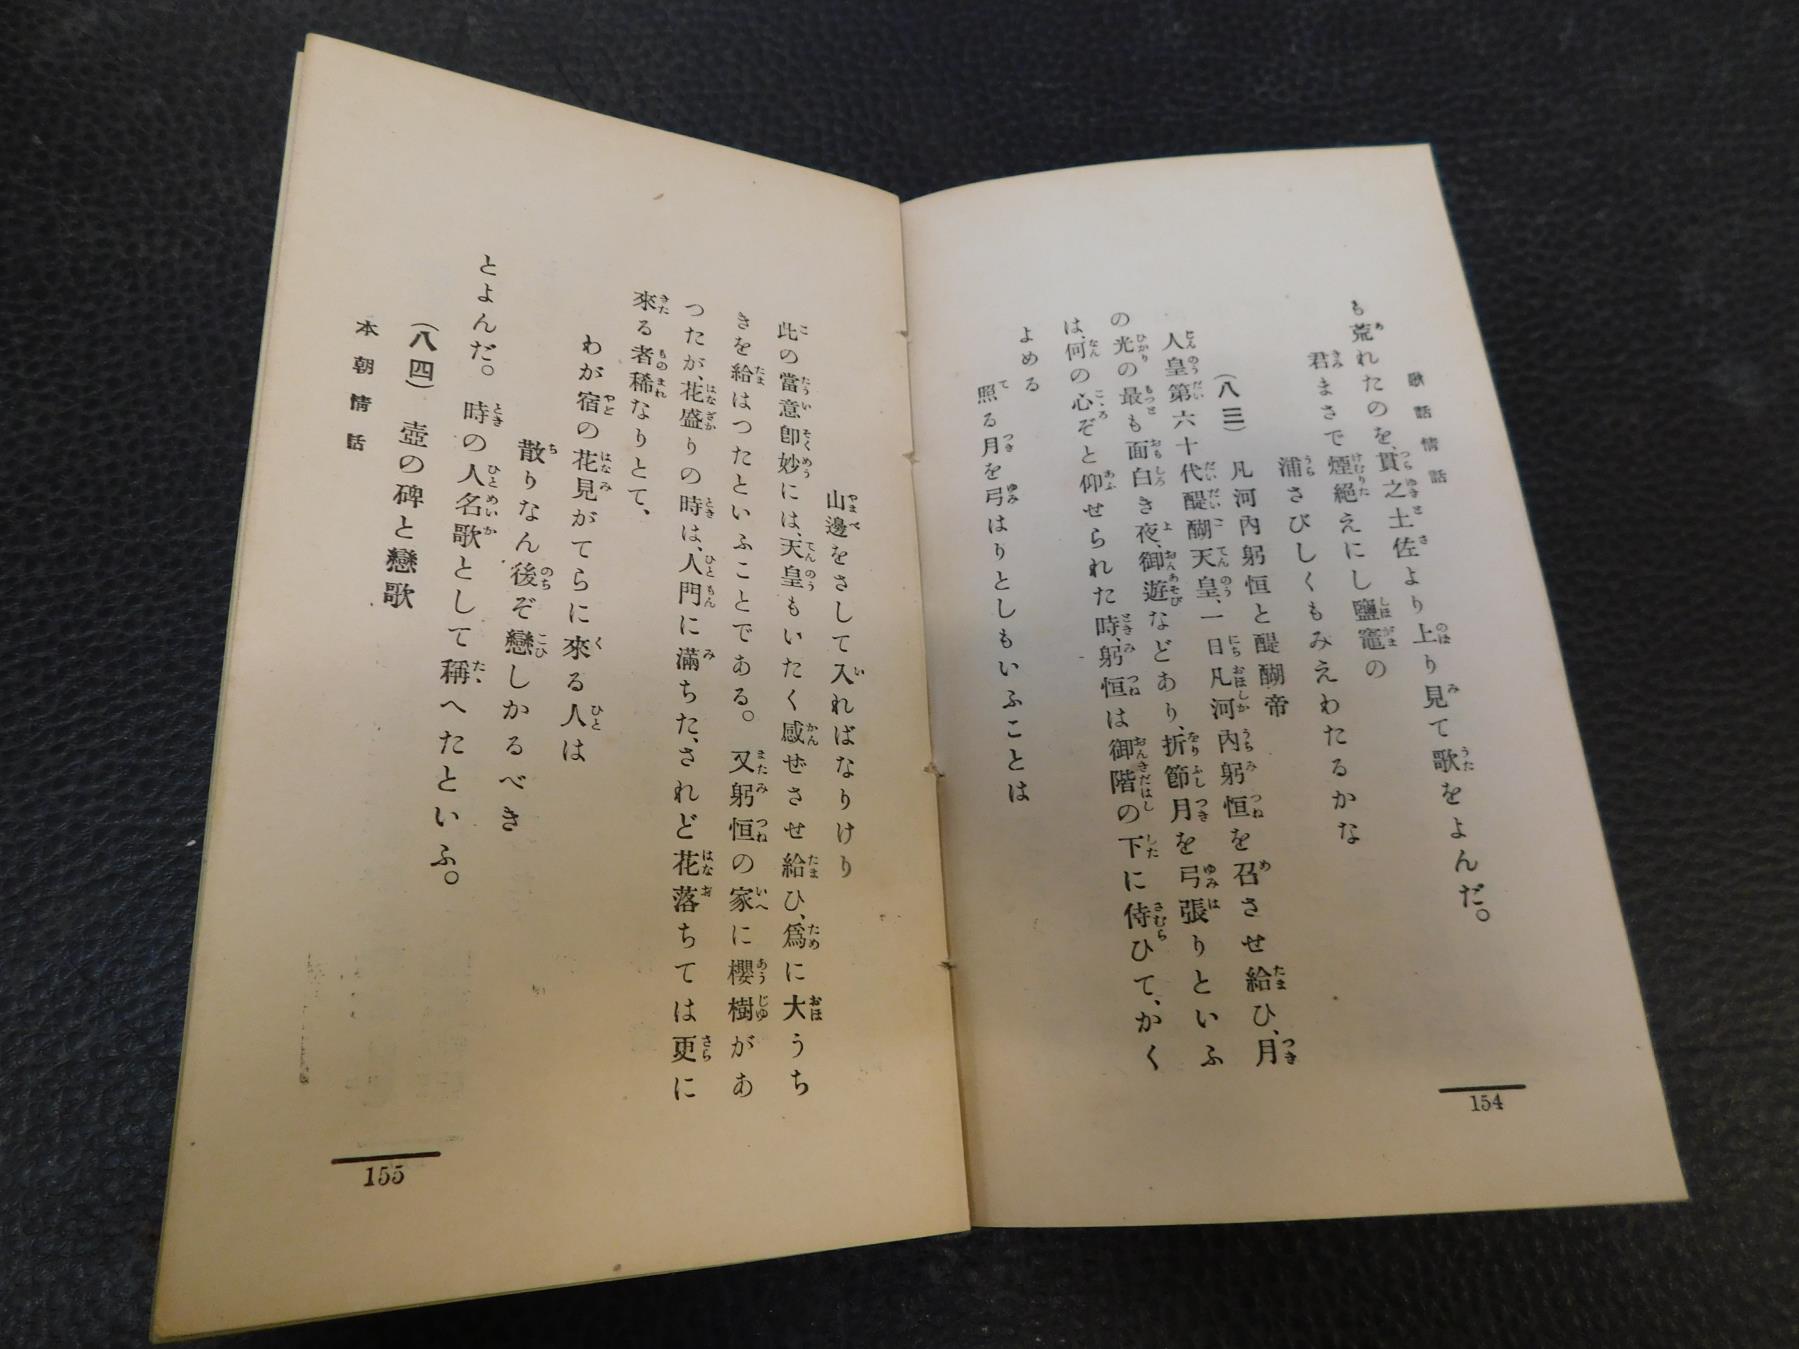 歌話情話
も荒れたのを、貫之土佐より上り見て歌をよんだ。
君まさで煙絶えにし鹽竈の
浦さびしくもみえわたるかな
(八三) 凡河內躬恒と醍醐帝
人皇第六十代醍醐天皇、一日凡河內躬恒を召させ給ひ、月
の光の最も面白き夜、御遊などあり、折節月を弓張りといふ
は、何の心ぞと仰せられた時、躬恒は御階の下に侍ひて、かく
よめる
照る月を弓はりとしもいふことは
154
山邊をさして入ればなりけり
此の當意卽妙には、天皇もいたく感ぜさせ給ひ、爲に大うち
きを給はつたといふことである。又躬恒の家に櫻樹があ
つたが、花盛りの時は、人門に滿ちた、されど花落ちては更に
來る者稀なりとて、
わが宿の花見がてらに來る人は
散りなん後ぞ戀しかるべき
とよんだ。時の人名歌として稱へたといふ。
(八四) 壺の碑と戀歌
本朝情話
155